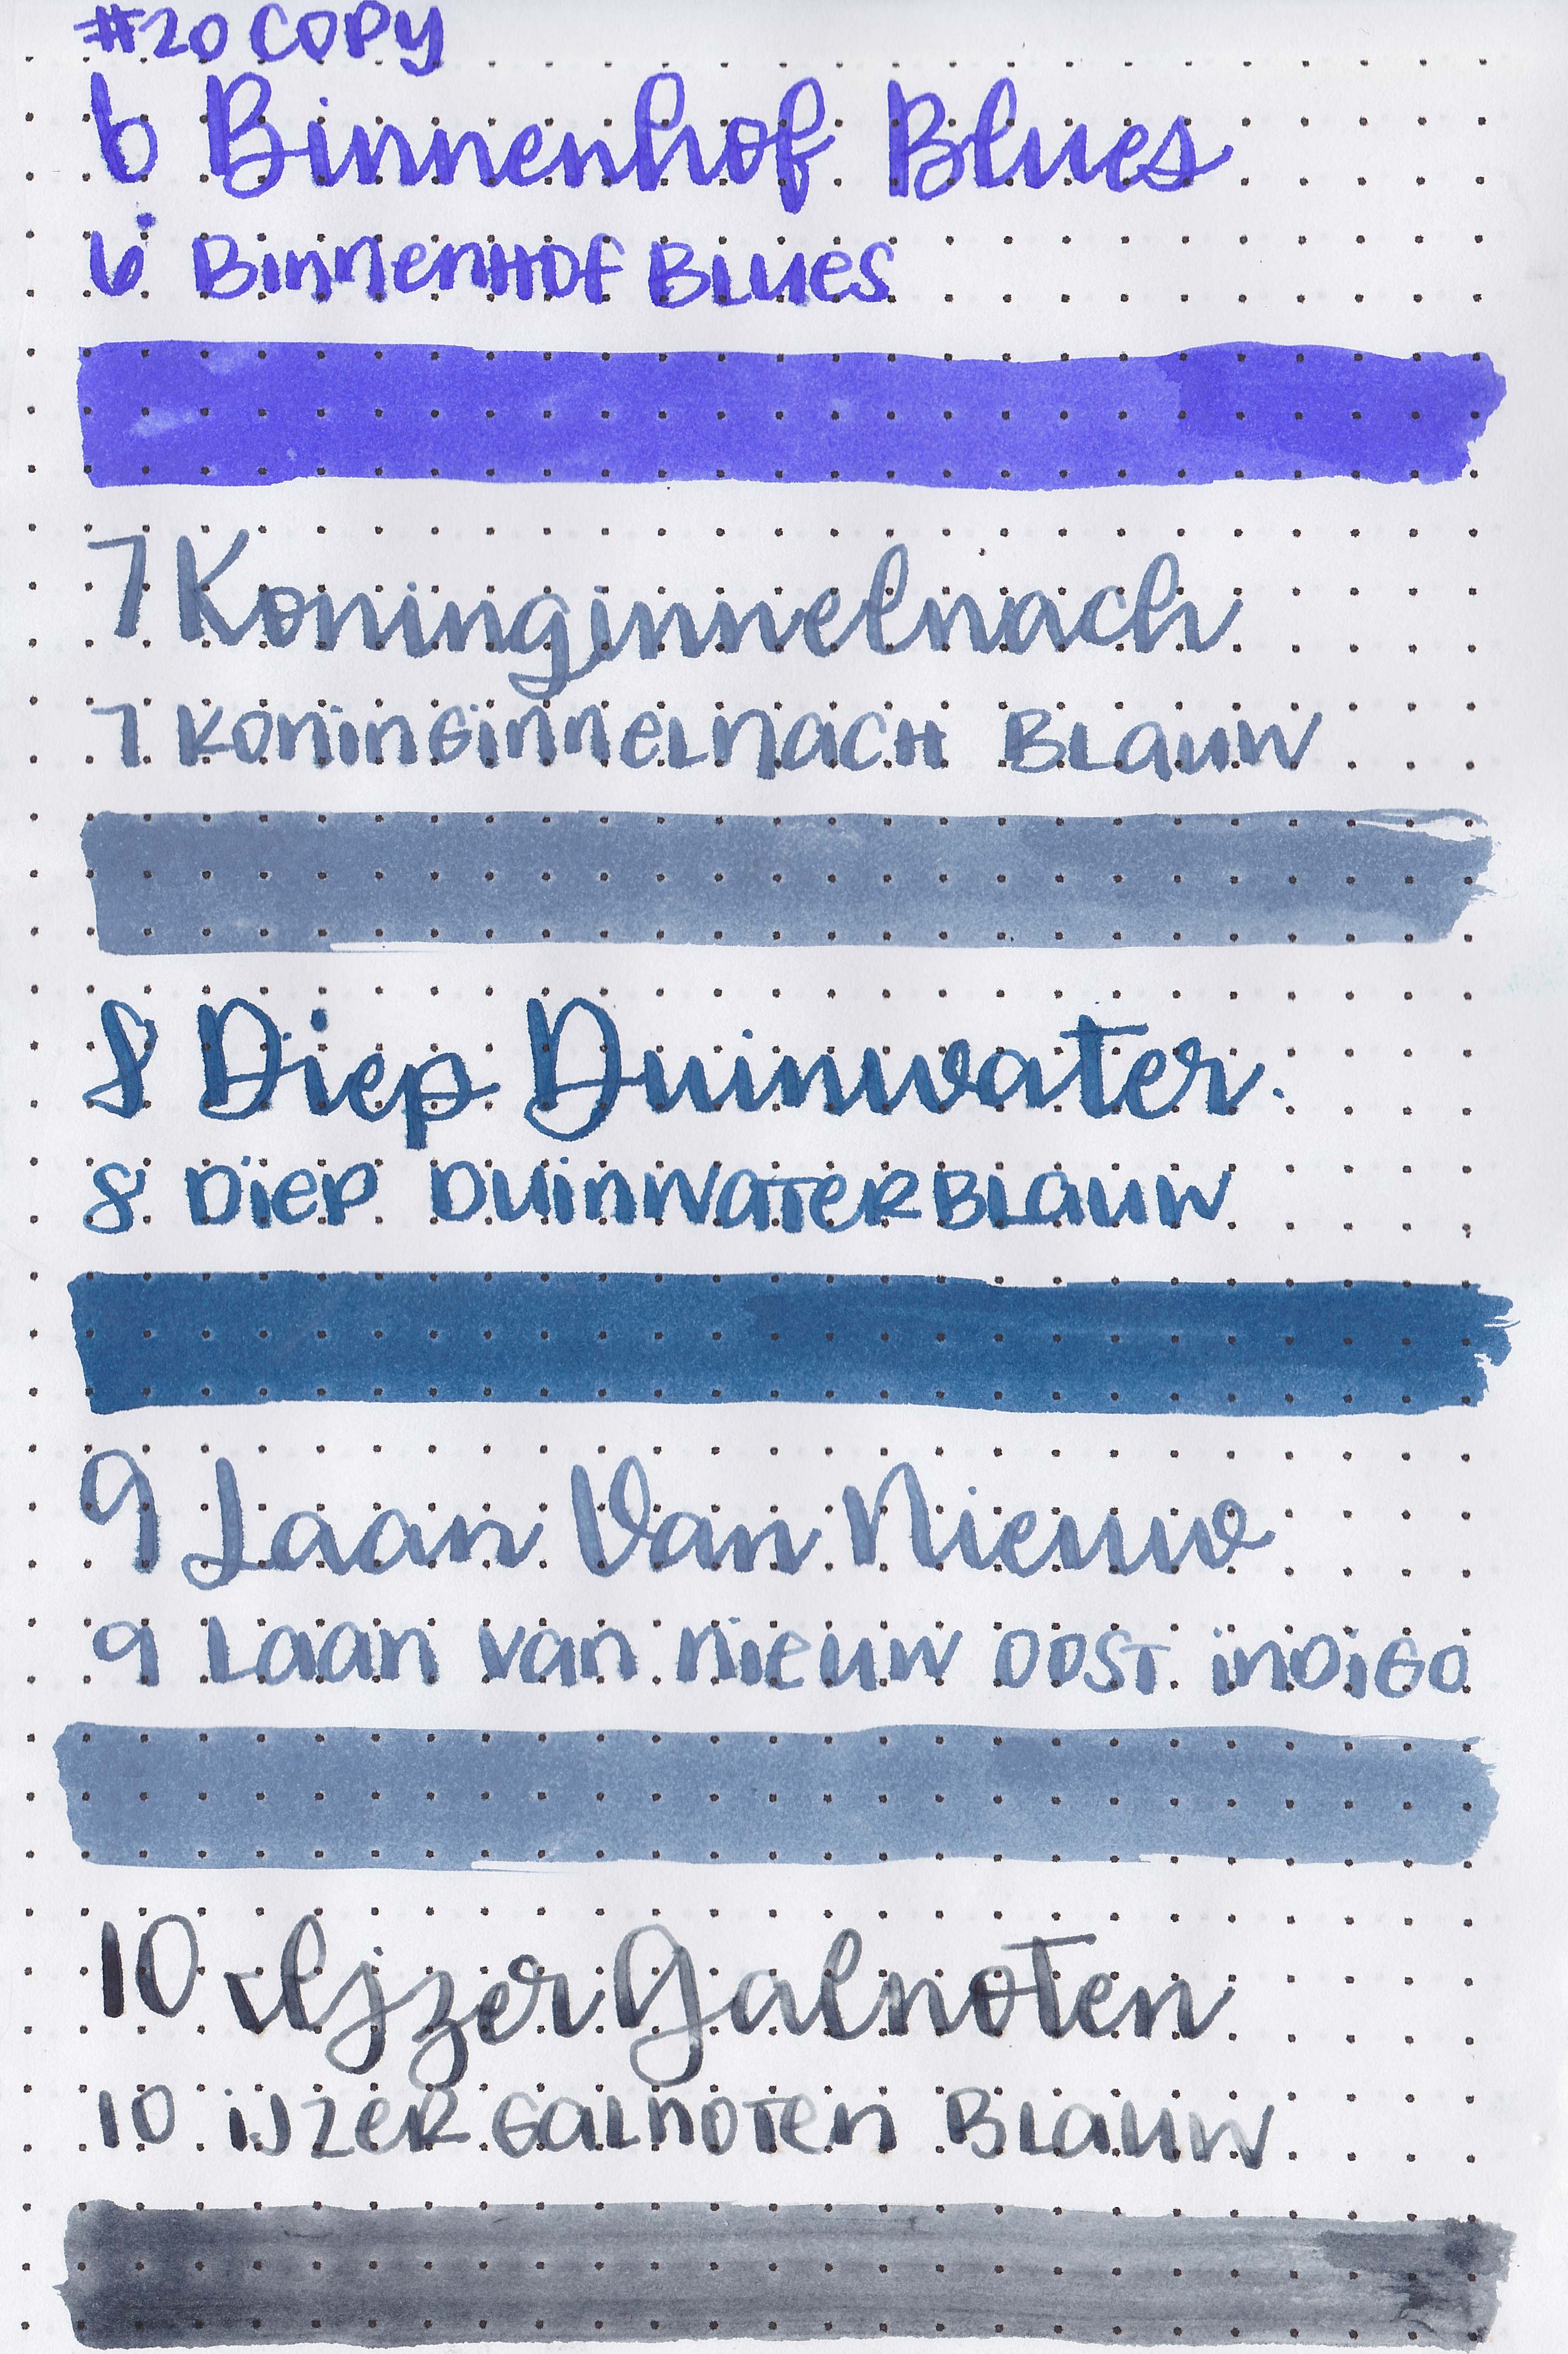 #20 COPY
6 Binnenhof Blues
6 BinnenHOf BLUES
7 Koninginnelnach
7 KoninGinnelnacH BLauW
8 Diep Duinwater
8 DiEP DuinWaTeRBLauW
9 Laan Van Nieuw
9 Laan van nieuW OOST inDiGO
10 IJzer Galnoten
10 iJZeR GaLnOTen BLauW